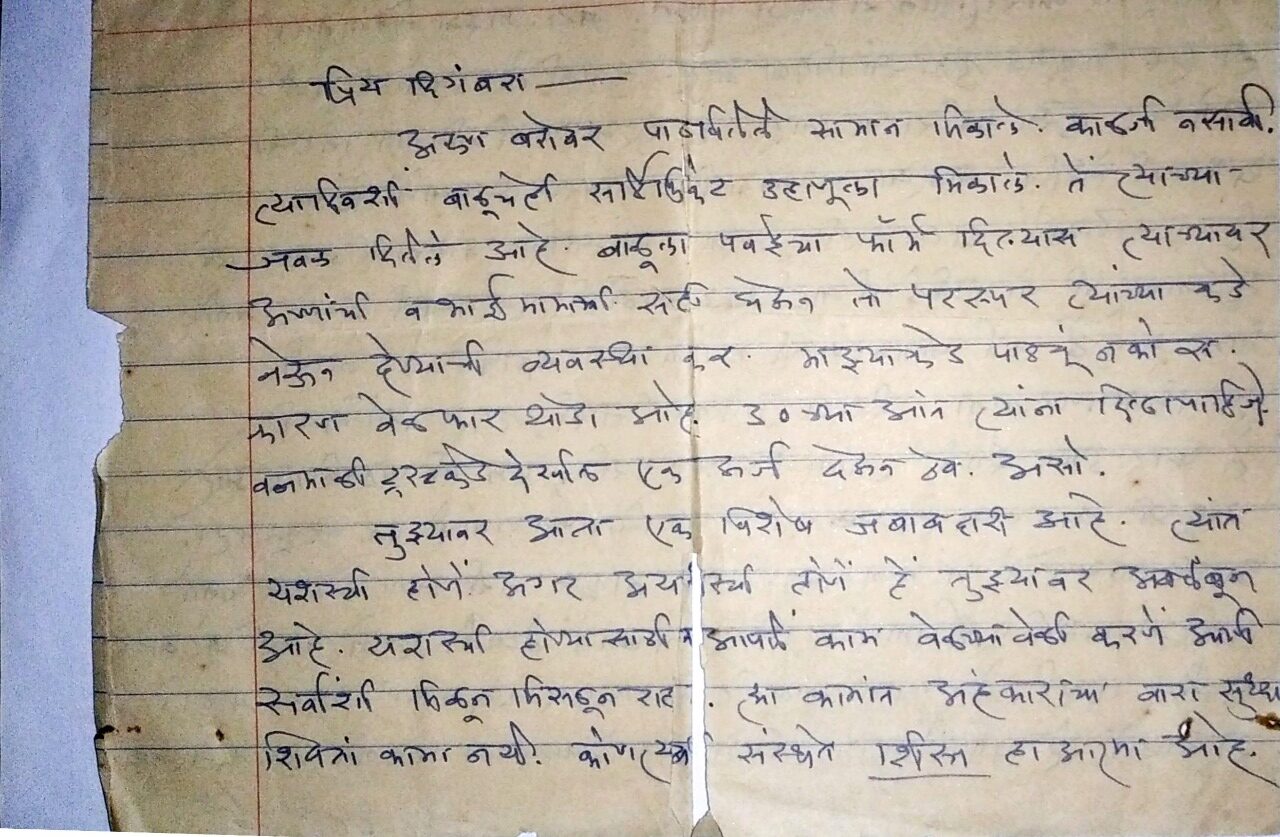 प्रिय दिगंबरा —
अरुण बरोबर पाठविलेले सामान मिळाले. काळजी नसावी.
त्यादिवशी बाळूचेही सर्टिफिकेट उहापूला मिळाले. ते त्याच्या
जवळ दिलेले आहे. बाळूला पवईचा फॉर्म दिल्यास त्याच्यावर
अण्णांची व भाई मामाची सही घेऊन तो परस्पर त्यांच्या कडे
नेऊन देण्याची व्यवस्था कर. माझ्याकडे पाठवूं नकोस.
कारण वेळ फार थोडा आहे. ३० च्या आंत त्यांना दिला पाहिजे.
वनमाळी ट्रस्टकडे देखील एक अर्ज देऊन ठेव. असो.
तुझ्यावर आता एक विशेष जबाबदारी आहे. त्यांत
यशस्वी होणें अगर अयशस्वी होणें हें तुझ्यावर अवलंबून
आहे. यशस्वी होण्यासाठी आपलें काम वेळच्यावेळी करणें आणि
सर्वांशी मिळून मिसळून राह. या कामांत अहंकाराचा वारा सुध्दा
शिवतां कामा नये. कोणत्याही संस्थेत शिस्त हा आत्मा आहे.